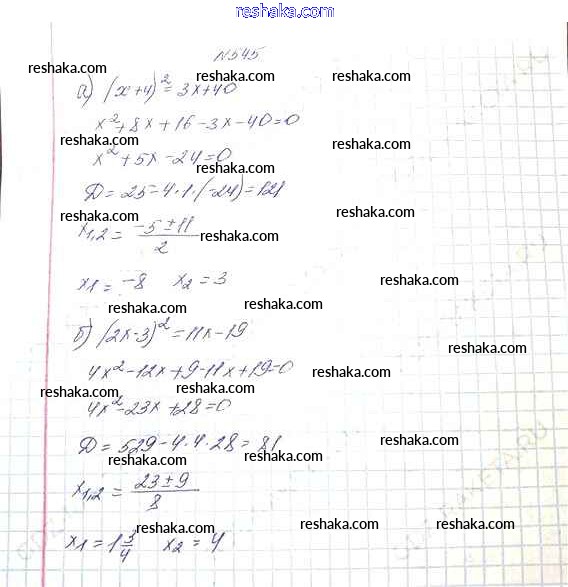 reshaka.com
N545
reshaka.com reshaka.com reshaka.com
а) (x+4)² = 3x+40
reshaka.com
x²+8x+16-3x-40=0
reshaka.com reshaka.com
x²+5x-24=0
reshaka.com
Д = 25-4·1·(-24)=121
reshaka.com reshaka.com
x1,2 = (-5±11)/2
reshaka.com
x1 = -8 x2 = 3
reshaka.com
reshaka.com reshaka.com
б) (2x-3)² = 11x-19
reshaka.com
4x²-12x+9-11x+19=0
reshaka.com
reshaka.com reshaka.com
4x²-23x+28=0
Д = 529-4·4·28=81
reshaka.com
reshaka.com reshaka.com
x1,2 = (23±9)/8
x1 = 1 3/4 x2 = 4
reshaka.com reshaka.com reshaka.com